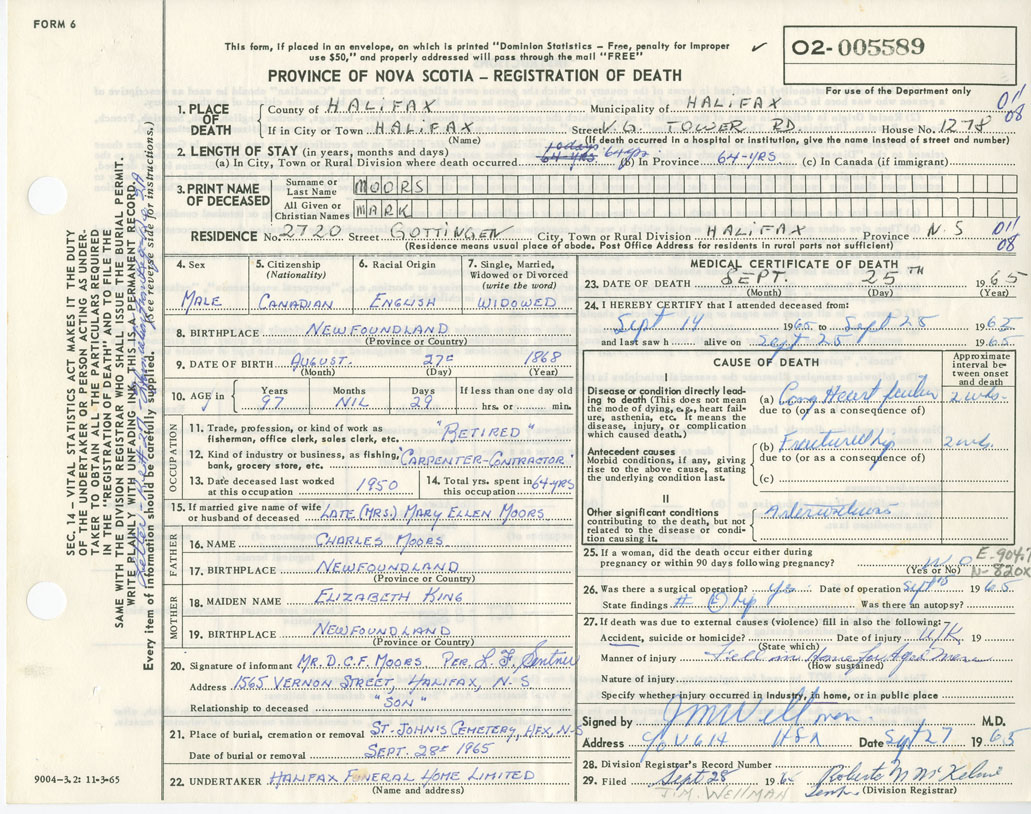 FORM 6
This form, if placed in an envelope, on which is printed "Dominion Statistics – Free, penalty for improper
use $50," and properly addressed will pass through the mail "FREE"
✓
02-005589
For use of the Department only
PROVINCE OF NOVA SCOTIA – REGISTRATION OF DEATH
011
08
1. PLACE OF DEATH County of HALIFAX Municipality of HALIFAX
If in City or Town HALIFAX Street V.G. TOWER RD House No. 1278
(Name) (If death occurred in a hospital or institution, give the name instead of street and number)
2. LENGTH OF STAY (in years, months and days)
(a) In City, Town or Rural Division where death occurred 64-yrs 64yrs (b) In Province 64-YRS (c) In Canada (if immigrant)
3. PRINT NAME OF DECEASED
Surname or Last Name MOORS
All Given or Christian Names MARK
RESIDENCE No. 2720 Street GOTTINGEN City, Town or Rural Division HALIFAX Province N.S
(Residence means usual place of abode. Post Office Address for residents in rural parts not sufficient)
011
08
4. Sex MALE
5. Citizenship (Nationality) CANADIAN
6. Racial Origin ENGLISH
7. Single, Married, Widowed or Divorced (write the word) WIDOWED
8. BIRTHPLACE NEWFOUNDLAND
(Province or Country)
9. DATE OF BIRTH AUGUST 27 1868
(Month) (Day) (Year)
10. AGE in Years 97 Months NIL Days 29 If less than one day old
hrs. or min.
OCCUPATION
11. Trade, profession, or kind of work as fisherman, office clerk, sales clerk, etc. "RETIRED"
12. Kind of industry or business, as fishing, bank, grocery store, etc. "CARPENTER-CONTRACTOR"
13. Date deceased last worked at this occupation 1950
14. Total yrs. spent in this occupation 64-YRS
15. If married give name of wife or husband of deceased LATE (MRS.) MARY ELLEN MOORS
FATHER
16. NAME CHARLES MOORS
17. BIRTHPLACE NEWFOUNDLAND
(Province or Country)
MOTHER
18. MAIDEN NAME ELIZABETH KING
19. BIRTHPLACE NEWFOUNDLAND
(Province or Country)
20. Signature of informant MR. D.C.F. MOORS PER.
Address 1565 VERNON STREET, HALIFAX, N-S
Relationship to deceased "SON"
21. Place of burial, cremation or removal ST-JOHN'S CEMETERY, HFX, N-S
Date of burial or removal SEPT. 28 1965
22. UNDERTAKER HALIFAX FUNERAL HOME LIMITED
(Name and address)
MEDICAL CERTIFICATE OF DEATH
23. DATE OF DEATH SEPT. 25TH 1965
(Month) (Day) (Year)
24. I HEREBY CERTIFY that I attended deceased from:
Sept 14 1965 to Sept 25 1965
and last saw h alive on Sept 25 1965
CAUSE OF DEATH
Approximate interval between onset and death
I
Disease or condition directly leading to death (This does not mean the mode of dying, e.g., heart failure, asthenia, etc. It means the disease, injury, or complication which caused death.)
(a) Cong Heart failure 2 wks.
due to (or as a consequence of)
Antecedent causes
Morbid conditions, if any, giving rise to the above cause, stating the underlying condition last.
(b) Fractured hip 2 wks.
due to (or as a consequence of)
(c)
II
Other significant conditions contributing to the death, but not related to the disease or condition causing it.
25. If a woman, did the death occur either during pregnancy or within 90 days following pregnancy?
(Yes or No)
E-904.7
N-820X
26. Was there a surgical operation? yes Date of operation Sept 15 1965
State findings # hip Was there an autopsy?
27. If death was due to external causes (violence) fill in also the following:
Accident, suicide or homicide? Date of injury U/K 19
(State which)
Manner of injury Fell in Home for Aged Men
(How sustained)
Nature of injury
Specify whether injury occurred in industry, in home, or in public place
Signed by M.D.
Address Date Sept 27 1965
28. Division Registrar's Record Number
29. Filed Sept. 28 196
(Division Registrar)
J.M. WELLMAN
9004–3.2: 11-3-65
SEC. 14 – VITAL STATISTICS ACT MAKES IT THE DUTY
OF THE UNDERTAKER OR PERSON ACTING AS UNDER-
TAKER TO OBTAIN ALL THE PARTICULARS REQUIRED
IN THE "REGISTRATION OF DEATH" AND TO FILE THE
SAME WITH THE DIVISION REGISTRAR WHO SHALL ISSUE THE BURIAL PERMIT.
WRITE PLAINLY WITH UNFADING INK. THIS IS A PERMANENT RECORD.
Every item of information should be carefully supplied. (See reverse side for instructions.)